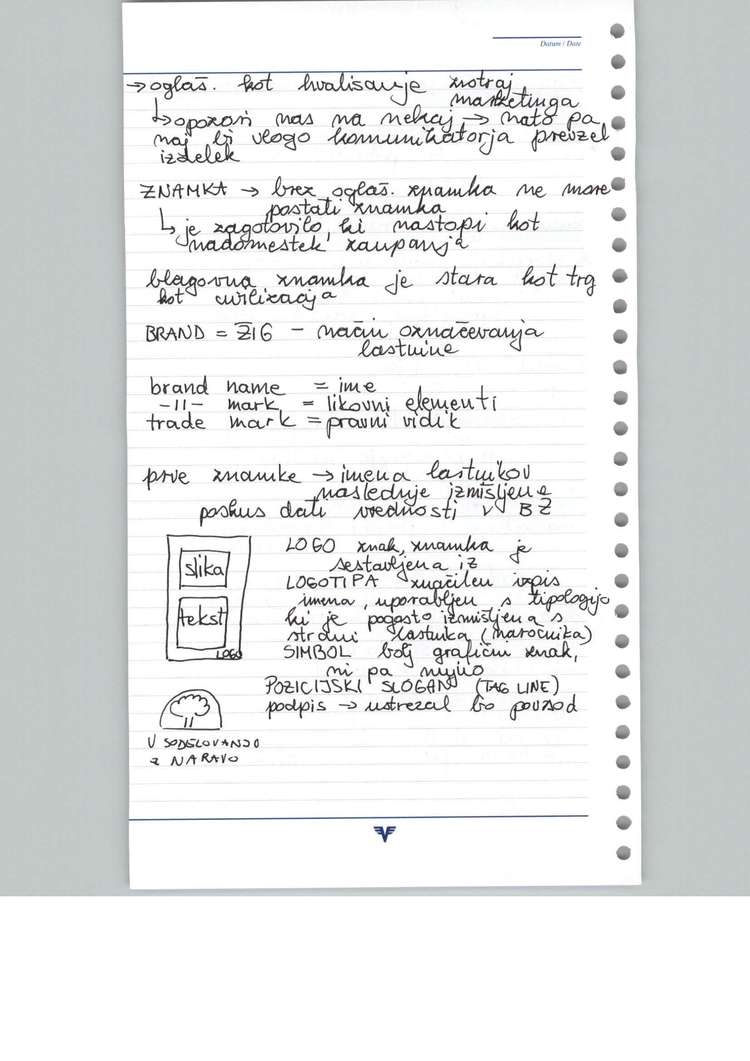 Datum / Date
→ oglaš. kot hvalisanje znotraj
marketinga
↳ opozori nas na nekaj → nato pa
naj bi vlogo komunikatorja prevzel
izdelek
ZNAMKA → brez oglaš. znamka ne more
postati znamka
↳ je zagotovilo, ki nastopi kot
nadomestek zaupanja
blagovna znamka je stara kot trg
kot civilizacija
BRAND = ŽIG - način označevanja
lastnine
brand name = ime
-11- mark = likovni elementi
trade mark = pravni vidik
prve znamke → imena lastnikov
nasleduje izmišljene
poskus dati vrednosti v BZ
slika
tekst
LOGO
LOGO znak, znamka je
sestavljena iz
LOGOTIPA značilen izpis
imena, uporabljen s tipologijo
ki je pogosto izmišljena s
strani lastnika (naročnika)
SIMBOL bolj grafičn znak,
ni pa nujno
POZICIJSKI SLOGAN (TAG LINE)
podpis → ustrezal bo povsod
V SODELOVANJU
Z NARAVO